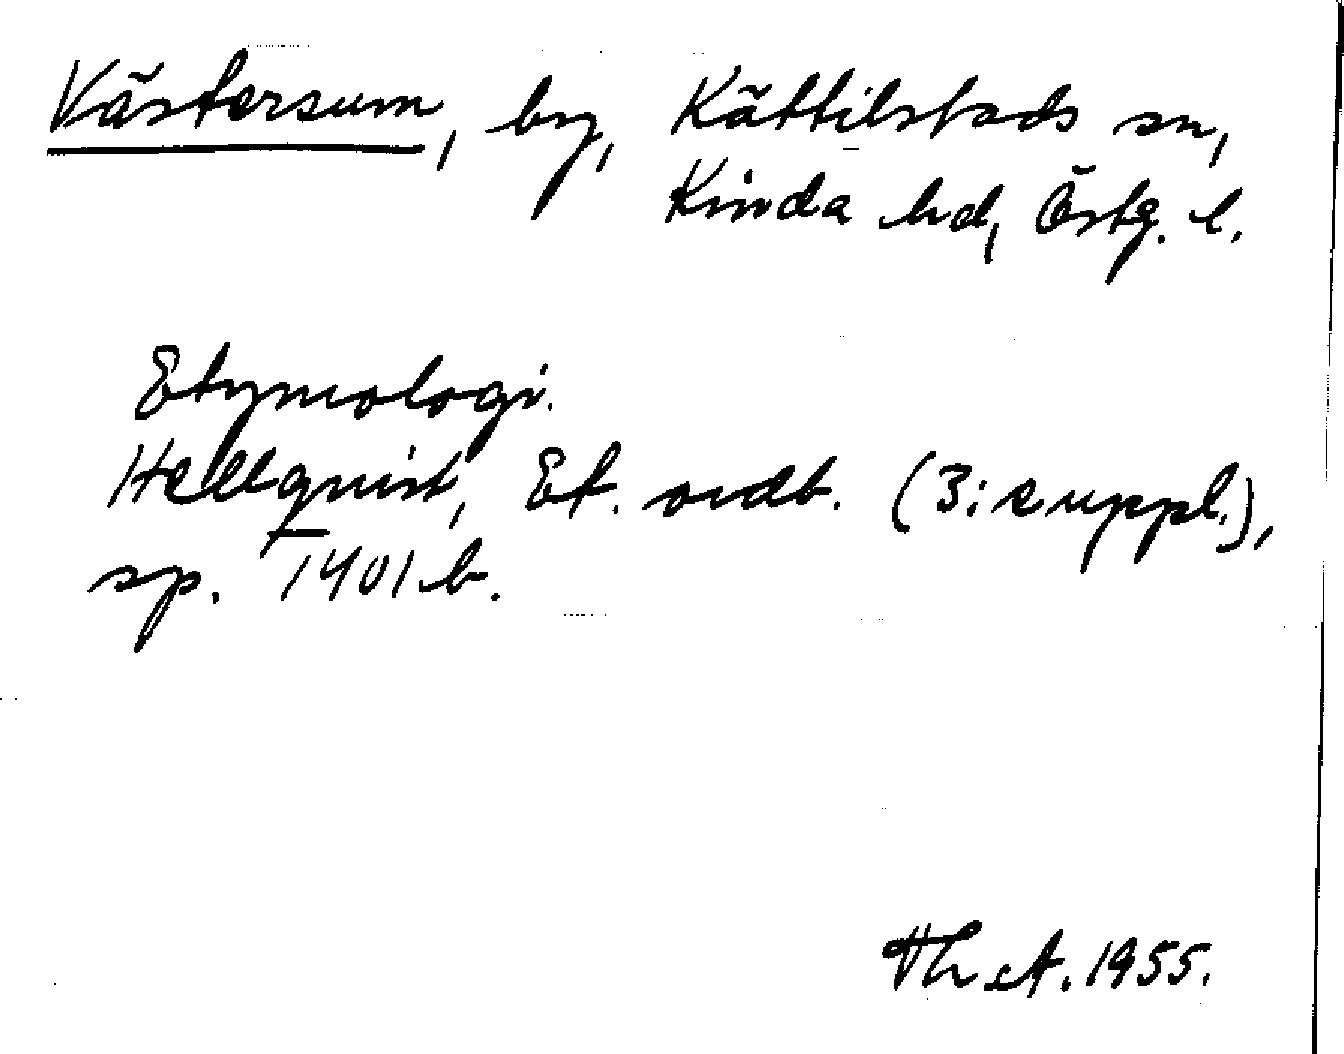 Västersum, by, Kättilstads sn,
Kinda hd, Östg. l.
Etymologi.
Hellquist, Et. ordb. (3: suppl.),
sp. 1401 b.
Th. A. 1955.